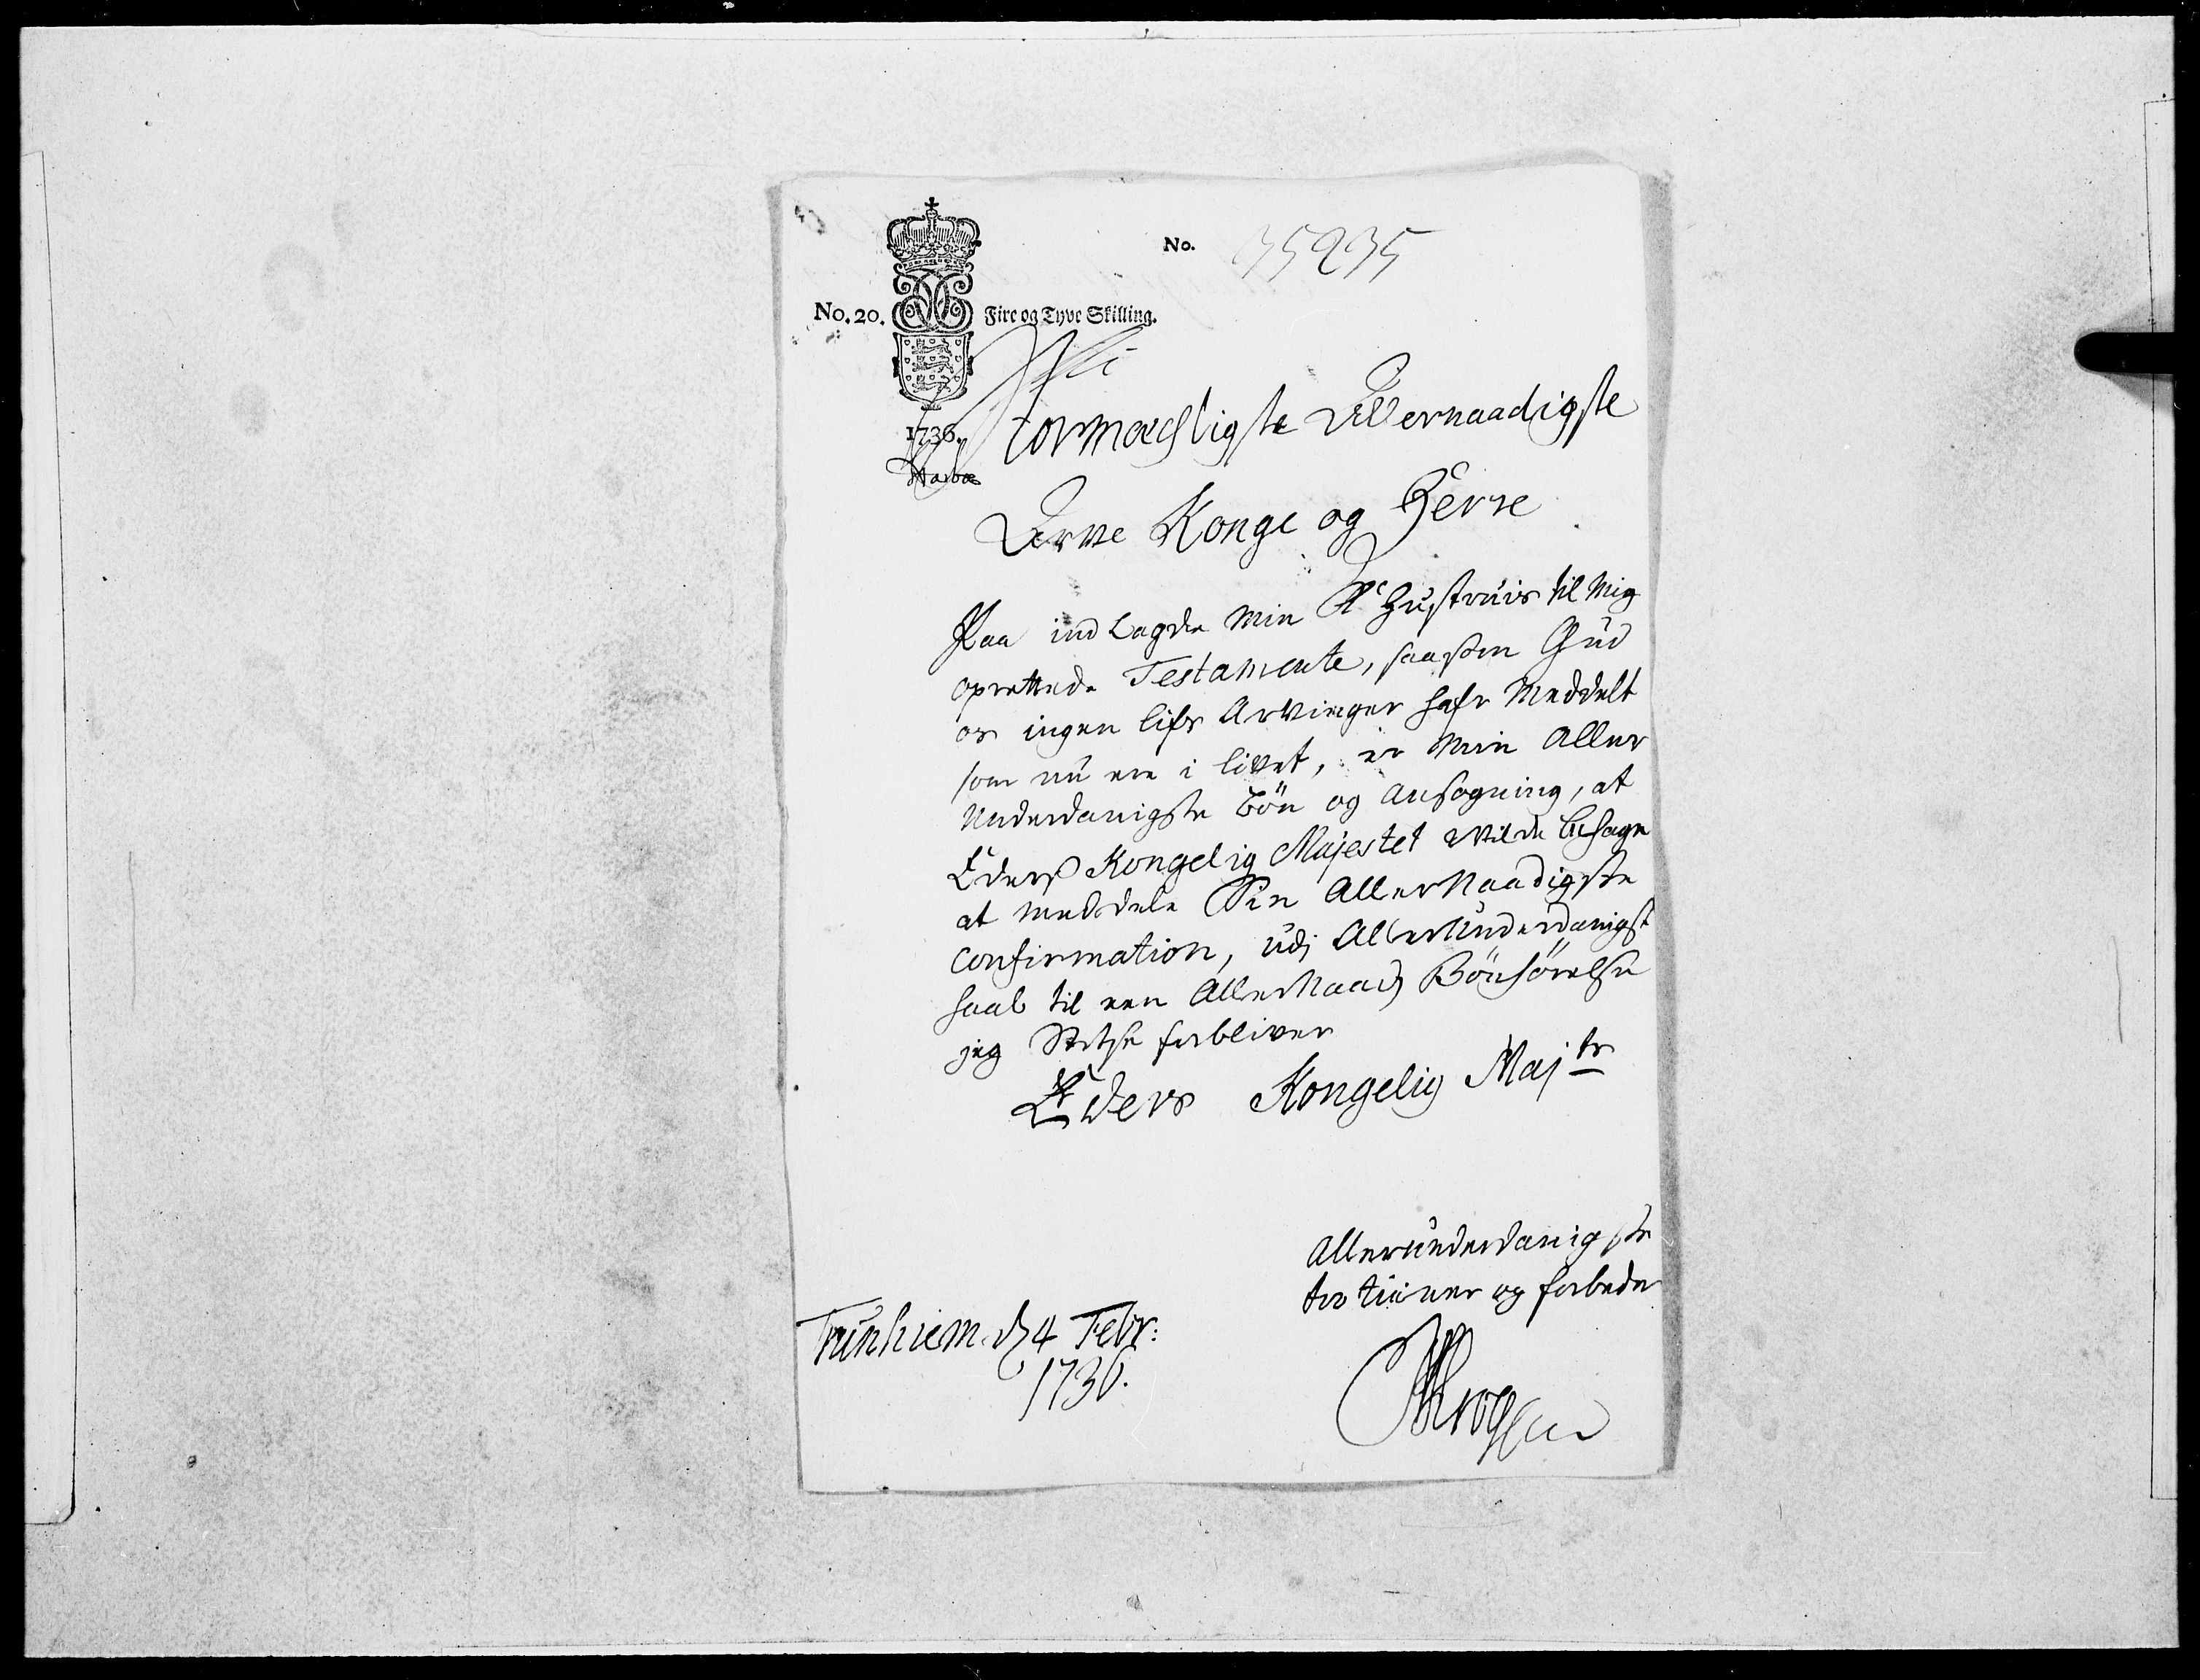 No. 35235
No. 20. Fire og Tyve Skilling.
1736.
Stormægtigste Allernaadigste
Arve Konge og Herre
Paa indlagde min Kl Hustruis til mig
oprettede Testamente, saasom Gud
os ingen lifs Arvinger hafr meddelt
som nu ere i livet, er min Aller
underdanigste bön og ansogning, at
Eders Kongelig Majestet vilde behage
at meddele Sin AllerNaadigste
Confirmation, udj AllerUnderdanigst
haab til een AllerNaad: Bönhörelse
jeg stetse forbliver
Eders Kongelig Majts
Allerunderdanigste
tro tiener og forbeder
Trunhiem d 4 Febr:
1736.